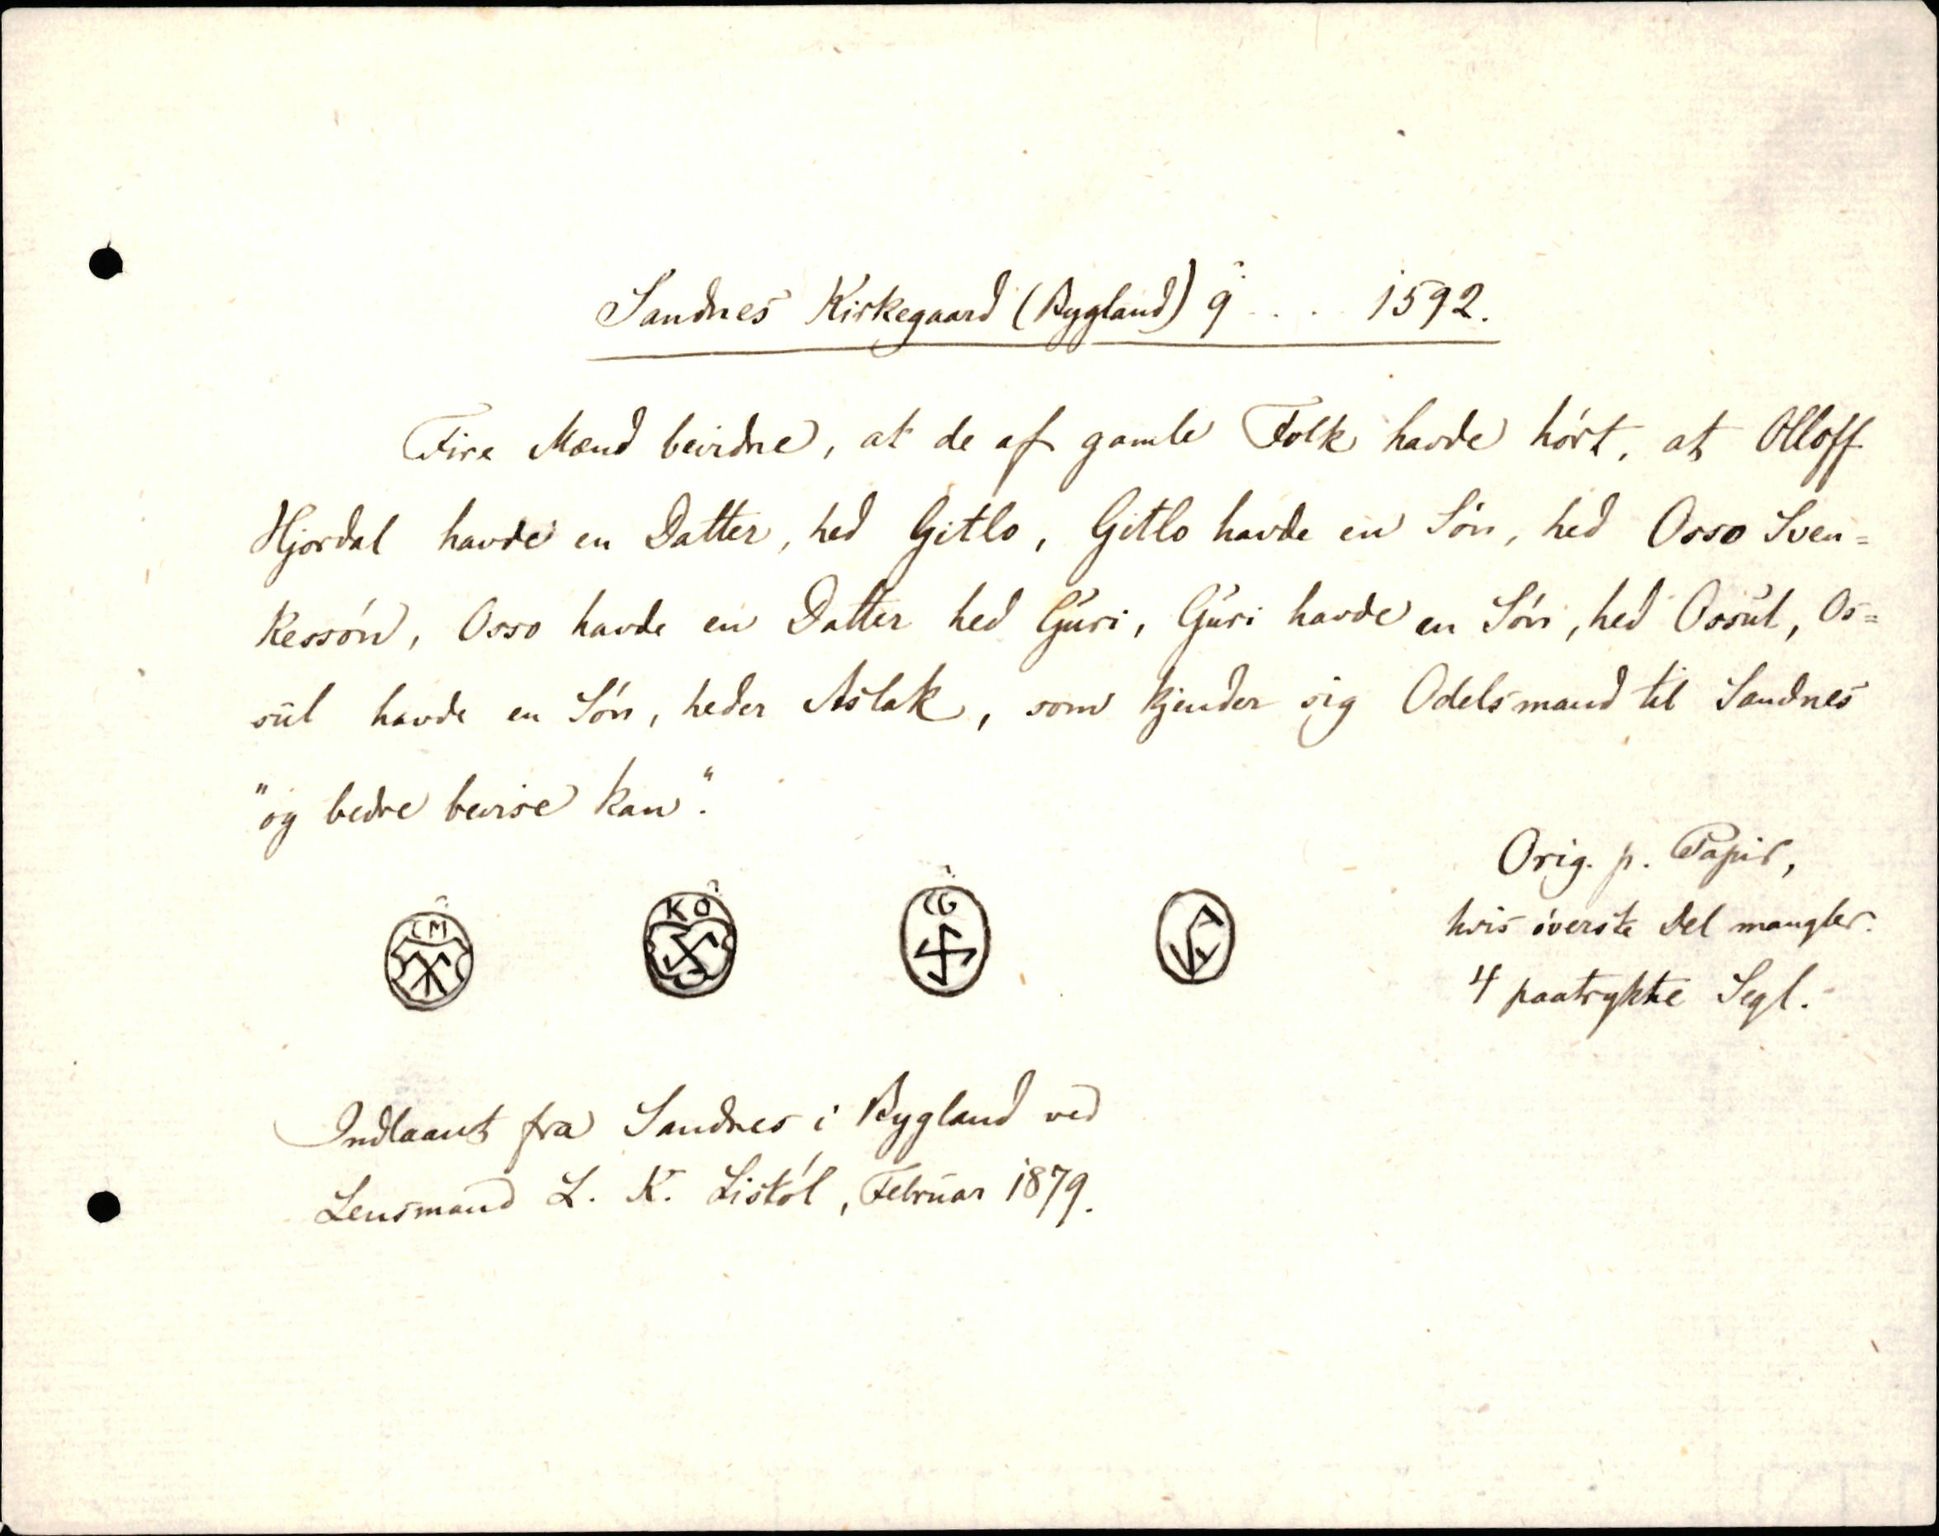 Sandnes Kirkegaard (Bygland) 9 . . . 1592.
Fire Mænd bevidne, at de af gamle Folk havde hórt, at Olloff
Hjordal havde en Datter, hed Gitlo, Gitlo havde en Són, hed Osso Sven=
kessón, Osso havde en Datter hed Guri, Guri havde en Són, hed Ossul, Os=
sul havde en Són, heder Aslak, som kjender sig Odelsmand til Sandnes
"og bedre bevise kan".
Orig. p. Papir,
hvis óverste Del mangler.
4 paatrykte Segl.
CM
KO
CG
Indlaant fra Sandnes i Bygland ved
Lensmand L. K. Listól, Februar 1879.